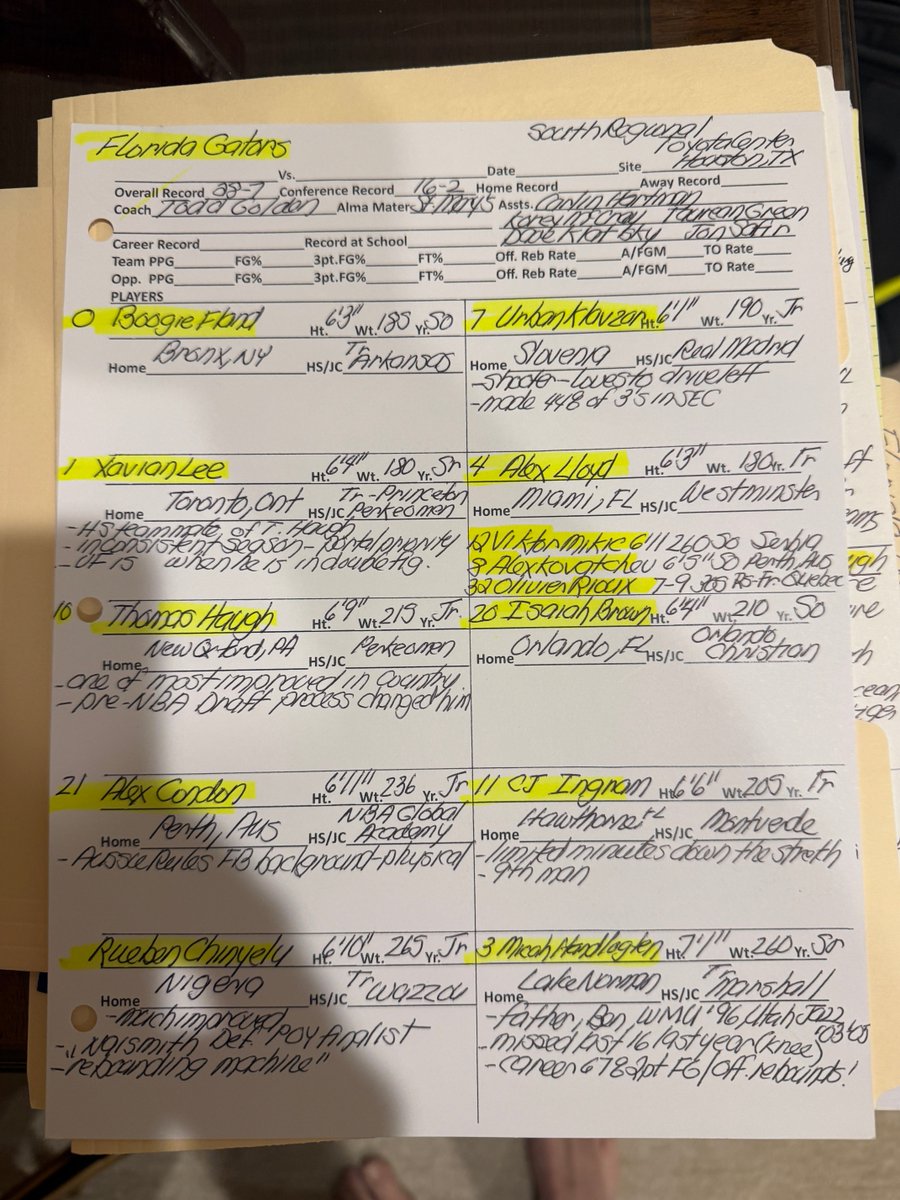 Florida Gators
South Regional
Toyota Center
Houston, TX
Vs. Date Site
Overall Record 28-7 Conference Record 16-2 Home Record Away Record
Coach Todd Golden Alma Mater St Mary's Assts. Carlin Hartman
Korey McCray Taurean Green
Dave Klatsky Jon Safir
Career Record Record at School
Team PPG FG% 3pt.FG% FT% Off. Reb Rate A/FGM TO Rate
Opp. PPG FG% 3pt.FG% FT% Off. Reb Rate A/FGM TO Rate
PLAYERS
0 Boogie Fland Ht. 6'3" Wt. 185 Yr. So
Home Bronx, NY HS/JC Tr Arkansas
7 Urban Klavzar Ht. 6'1" Wt. 190 Yr. Jr
Home Slovenia HS/JC Real Madrid
- shooter - loves to drive left
- made 448 of 3's in SEC
1 Xavian Lee Ht. 6'4" Wt. 180 Yr. Sr
Home Toronto, Ont HS/JC Tr - Princeton
Perkeomen
- HS teammate of T. Haugh
- inconsistent season - portal priority
- UF is when he is in double fig.
4 Alex Lloyd Ht. 6'3" Wt. 180 Yr. Fr
Home Miami, FL HS/JC Westminster
12 Viktor Mikic 6'11 260 So Serbia
9 Alex Kovatchev 6'5" So Perth Aus
32 Olivier Rioux 7-9 305 Rs-Fr Quebec
10 Thomas Haugh Ht. 6'9" Wt. 215 Yr. Jr.
Home New Oxford, PA HS/JC Perkeomen
- one of most improved in country
- pre-NBA Draft process changed him
20 Isaiah Brown Ht. 6'4" Wt. 210 Yr. So
Home Orlando, FL HS/JC Orlando
Christian
21 Alex Condon Ht. 6'11" Wt. 236 Yr. Jr
Home Perth, Aus HS/JC NBA Global
Academy
- Aussie Rules FB background - physical
11 CJ Ingram Ht. 6'6" Wt. 205 Yr. Fr
Home Hawthorne FL HS/JC Montverde
- limited minutes down the streth
- 9th man
Rueben Chinyelu 6'10" Wt. 265 Yr. Jr
Home Nigeria HS/JC Tr Wazzou
- much improved
- Naismith Def. POY Finalist
- "rebounding machine"
3 Micah Handlogten Ht. 7'1" Wt. 260 Yr. Sr
Home Lake Norman HS/JC Tr Marshall
- father, Ben, WMU '96, Utah Jazz
'03-'05
- missed last 16 last year (knee)
- career 678 2pt FG/Off. rebounds!